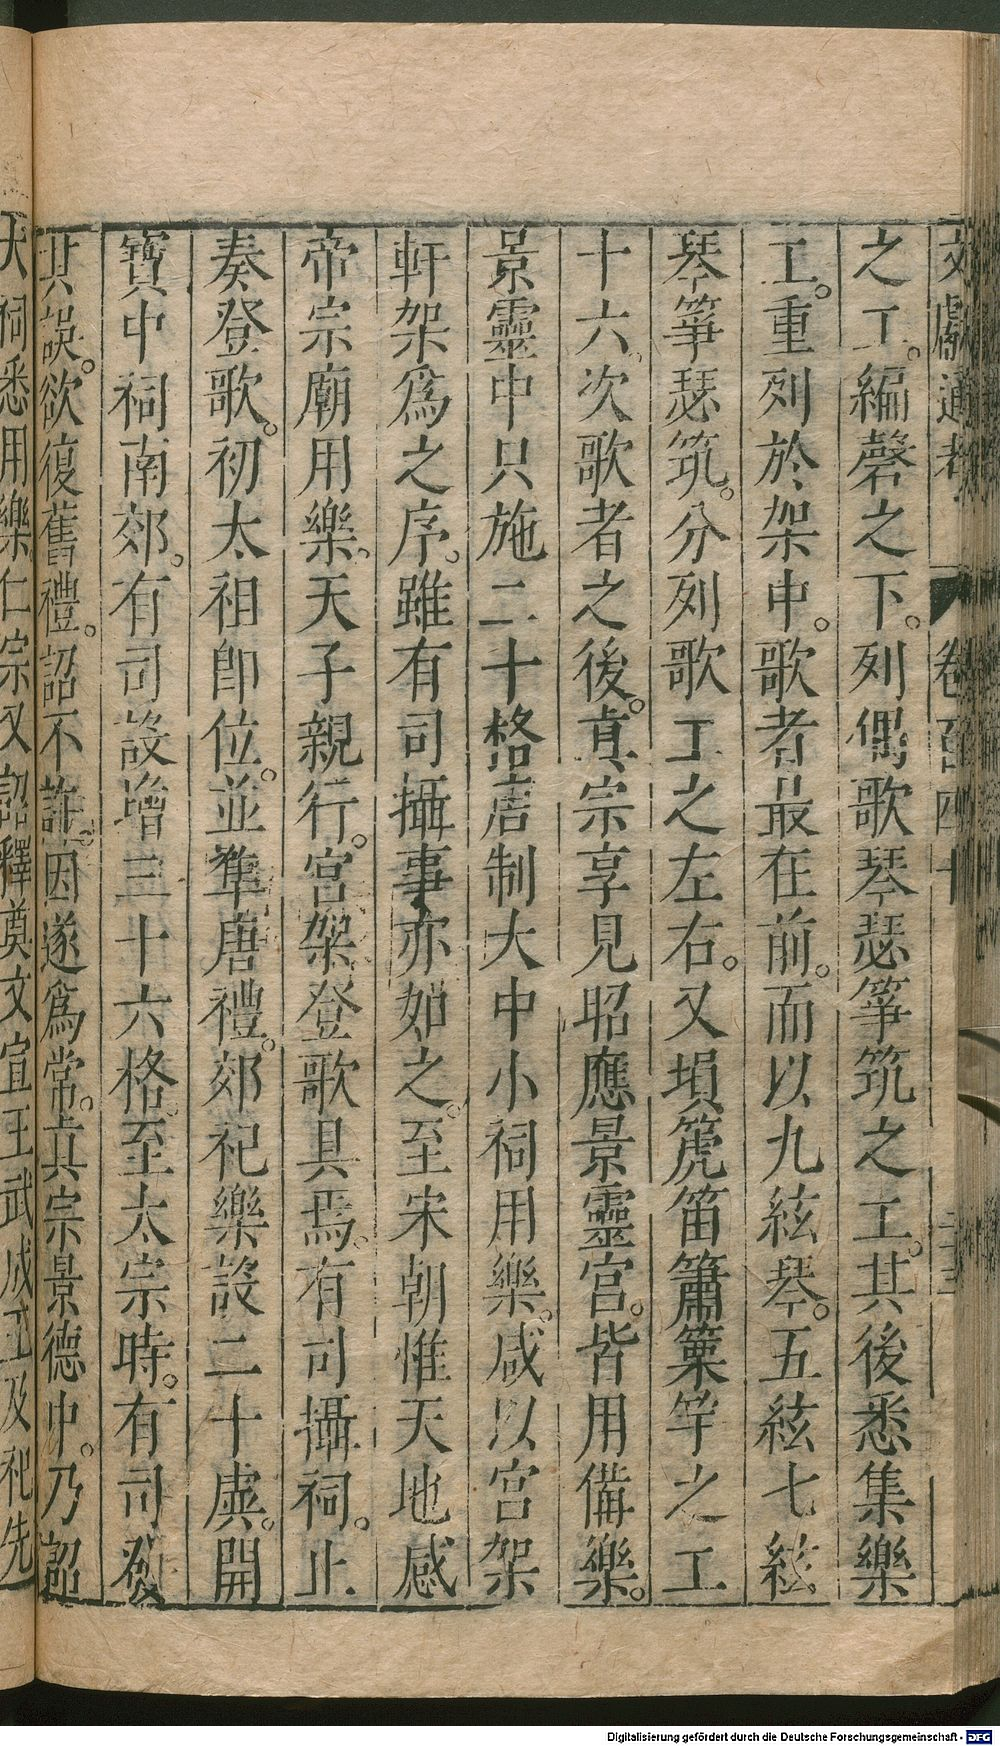 文獻通考 卷百四十
之工。編磬之下。列偶歌琴瑟箏筑之工。其後悉集樂
工。重列於架中。歌者最在前。而以九絃琴。五絃七絃
琴箏瑟筑。分列歌工之左右。又塤箎笛簫篥竽之工
十六。次歌者之後。真宗享見昭應景靈宮。皆用備樂。
景靈中只施二十格唐制大中小祠用樂。咸以宮架
軒架爲之序。雖有司攝事亦如之。至宋朝惟天地感
帝宗廟用樂。天子親行。宮架登歌具焉。有司攝祠。止
奏登歌。初太祖卽位。並準唐禮。郊祀樂設二十虡。開
寶中祠南郊。有司設增三十六格。至太宗時。有司發
其誤。欲復舊禮。詔不許。因遂爲常。真宗景德中。乃詔
大祠悉用樂。仁宗又詔釋奠文宣王武成王及祀先
Digitalisierung gefördert durch die Deutsche Forschungsgemeinschaft - DFG